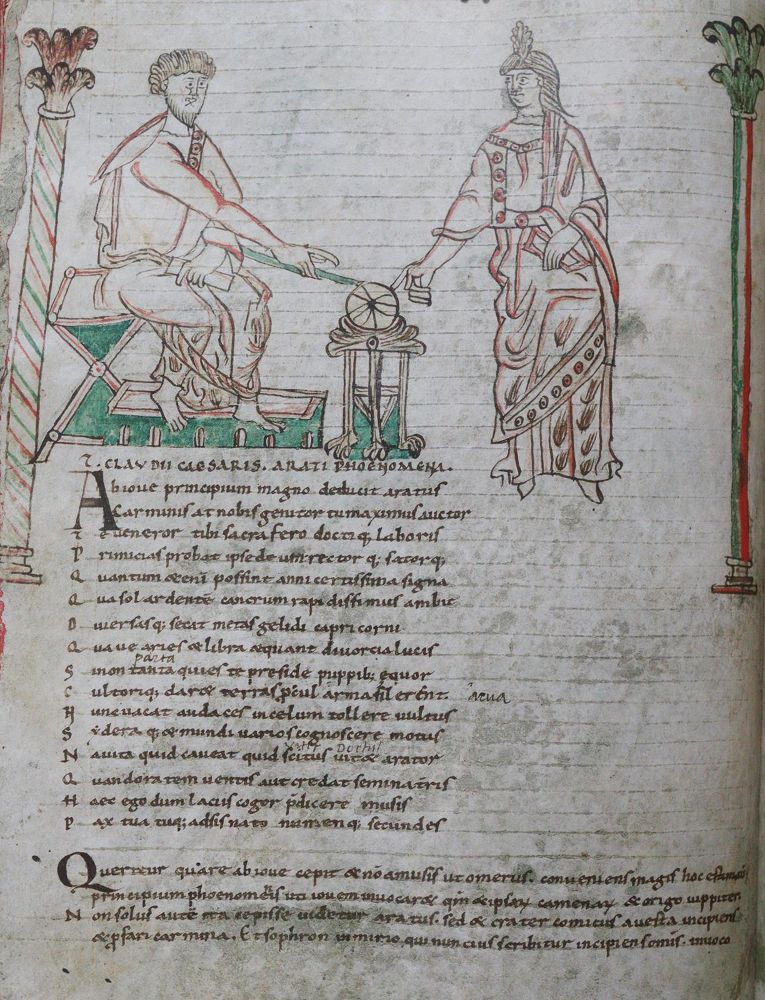 T. CLAVDII CAESARIS. ARATI PHOENOMENA.
Abioue principium magno deducit aratus
Carminis at nobis genitor tu maximus auctor
Te ueneror tibi sacra fero doctiq; laboris
Primicias probat ipse deum rector q; satorq;
Quantum &enī possint anni certissima signa
Qua sol ardente cancrum rapidissimus ambit
Diuersasq; secat metas gelidi capricorni
Quaue aries & libra aequant diuorcia lucis
parta
Si non tanta quies te preside puppib; equor
Cultoriq; daret terras pcul arma silerent.
Nunc uacat audaces in celum tollere uultus
Sydera q; & mundi uarios cognoscere motus
Nauita quid caueat quid scitus uitet arator
Quando ratem uentis aut credat semina tris
Haec ego dum laciis cogor pdicere musis
Pax tua tuq; adsis nato numenq; secundes
Queritur quare ab ioue cepit & nō a musis ut omerus. conueniens magis hoc
principium phoenomenis uti iouem inuocaret qm & ipsarum camenarum & origo iuppiter.
Non solus autē ita cepisse uidetur aratus. sed & crater comicus a uesta incipiens
& pfari carmina. Et sophron in mirio, qui nuncius scribitur incipiens omīs. inuoco